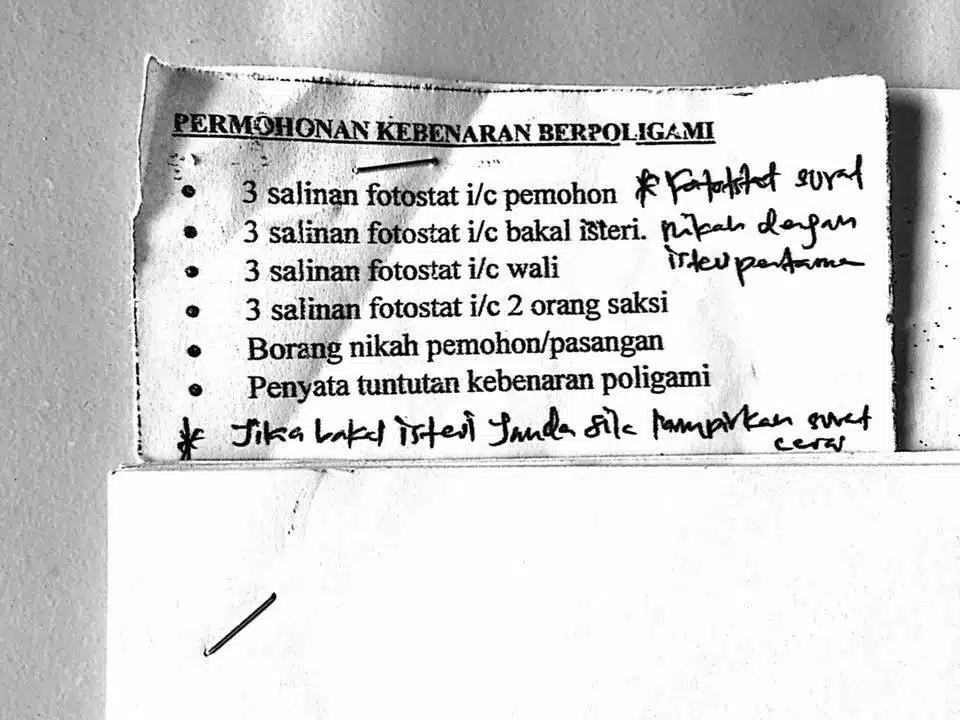 PERMOHONAN KEBENARAN BERPOLIGAMI
• 3 salinan fotostat i/c pemohon
• 3 salinan fotostat i/c bakal isteri.
• 3 salinan fotostat i/c wali
• 3 salinan fotostat i/c 2 orang saksi
• Borang nikah pemohon/pasangan
• Penyata tuntutan kebenaran poligami
* Fotostat surat
nikah dengan
isteri pertama
* Jika bakal isteri Janda sila lampirkan surat
cerai